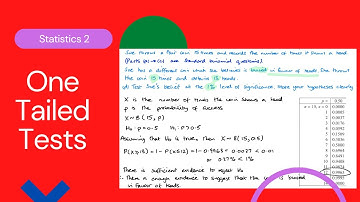 Statistics 2
One
Tailed
Tests
Sue throws a fair coin 15 times and records the number of times it shows a head
(Parts (a)→(c) are standard binomial questions).
Sue has a different coin which she believes is biased in favour of heads. She throws
the coin 15 times and obtains 13 heads.
d) Test Sue's belief at the 1% level of significance. State your hypotheses clearly
X is the number of times the coin shows a head
p is the probability of success
X~B(15,p)
H₀: p=0.5 H₁: p>0.5
Assuming that H₀ is true then X~B(15,0.5)
P(X≥13)=1-P(X≤12)=1-0.9963=0.0037<0.01
or 0.37%<1%
There is sufficient evidence to reject H₀
∴ There is enough evidence to suggest that the coin is biased
in favour of heads.
p = 0.50
0.0000
0.0005
0.0037
0.0176
0.0592
0.1509
0.3036
0.5000
0.6964
0.8491
0.9408
0.9824
0.9963
0.9995